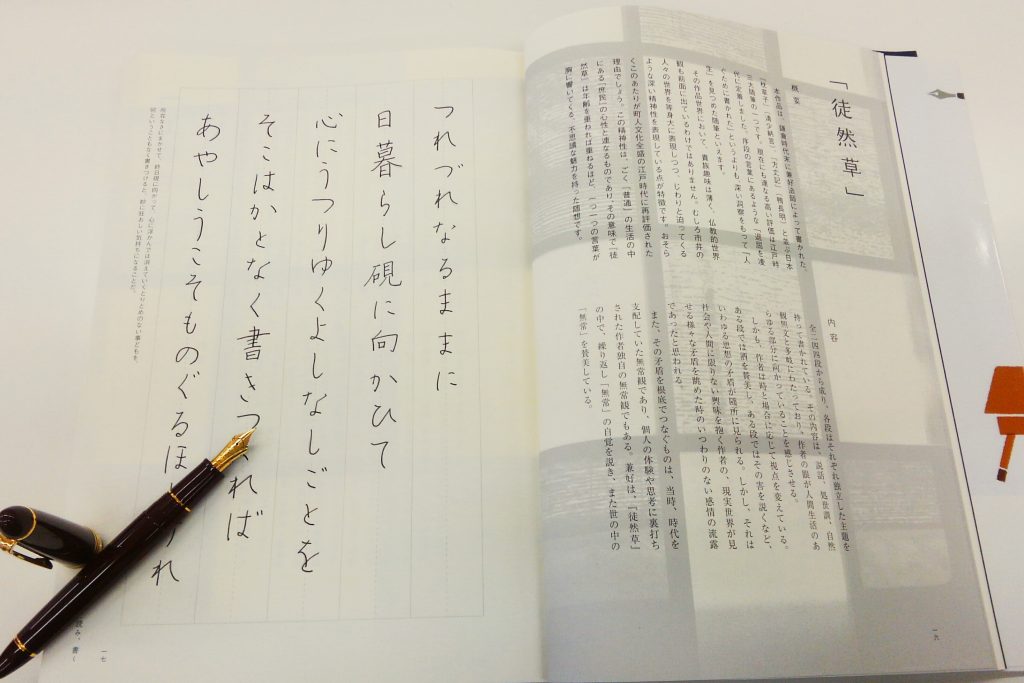 「徒然草」
概要
本作品は、鎌倉時代末に兼好法師によって書かれた、
『枕草子』（清少納言）、『方丈記』（鴨長明）と並ぶ日本
三大随筆の一つです。現在にも連なる高い評価は江戸時
代に定着しました。序段の言葉にあるような「退屈を凌
ぐために書かれた」というよりも、深い洞察をもって「人
生」を見つめた随筆といえます。
その作品世界において、貴族趣味は薄く、仏教的世界
観も前面に出ているわけではありません。むしろ市井の
人々の世界を等身大に表現しつつ、じわりと迫ってくる
ような深い精神性を表現している点が特徴です。おそら
くこのあたりが町人文化全盛の江戸時代に再評価された
理由でしょう。この精神性は、ごく「普通」の生活の中
にある「庶民」の心性と連なるものであり、その意味で『徒
然草』は年齢を重ねれば重ねるほど、一つ一つの言葉が
胸に響いてくる、不思議な魅力を持った随想です。
内容
全二四四段から成り、各段はそれぞれ独立した主題を
持って書かれている。その内容は、説話、処世訓、自然
観照文と多岐にわたっており、作者の眼が人間生活のあ
らゆる部分に向かっていることを感じさせる。
しかも、作者は時と場合に応じて視点を変えている。
ある段では酒を賛美し、ある段ではその害を説くなど、
いわゆる思想の矛盾が随所に見られる。しかし、それは
社会や人間に限りない興味を抱く作者の、現実世界が見
せる様々な矛盾を眺めた時のいつわりのない感情の流露
であったと思われる。
また、その矛盾を根底でつなぐものは、当時、時代を
支配していた無常観であり、個人の体験や思考に裏打ち
された作者独自の無常観でもある。兼好は、『徒然草』
の中で、繰り返し「無常」の自覚を説き、また世の中の
「無常」を賛美している。
一六
つれづれなるままに
日暮らし硯に向かひて
心にうつりゆくよしなしごとを
そこはかとなく書きつれば
あやしうこそものぐるほれ
所在なさにまかせて、終日硯に向かって、心に浮かんでは消えていくとりとめのない事どもを、
何ということもなく書きつけると、妙に狂おしい気持ちになることだ。
読み、書く
一七